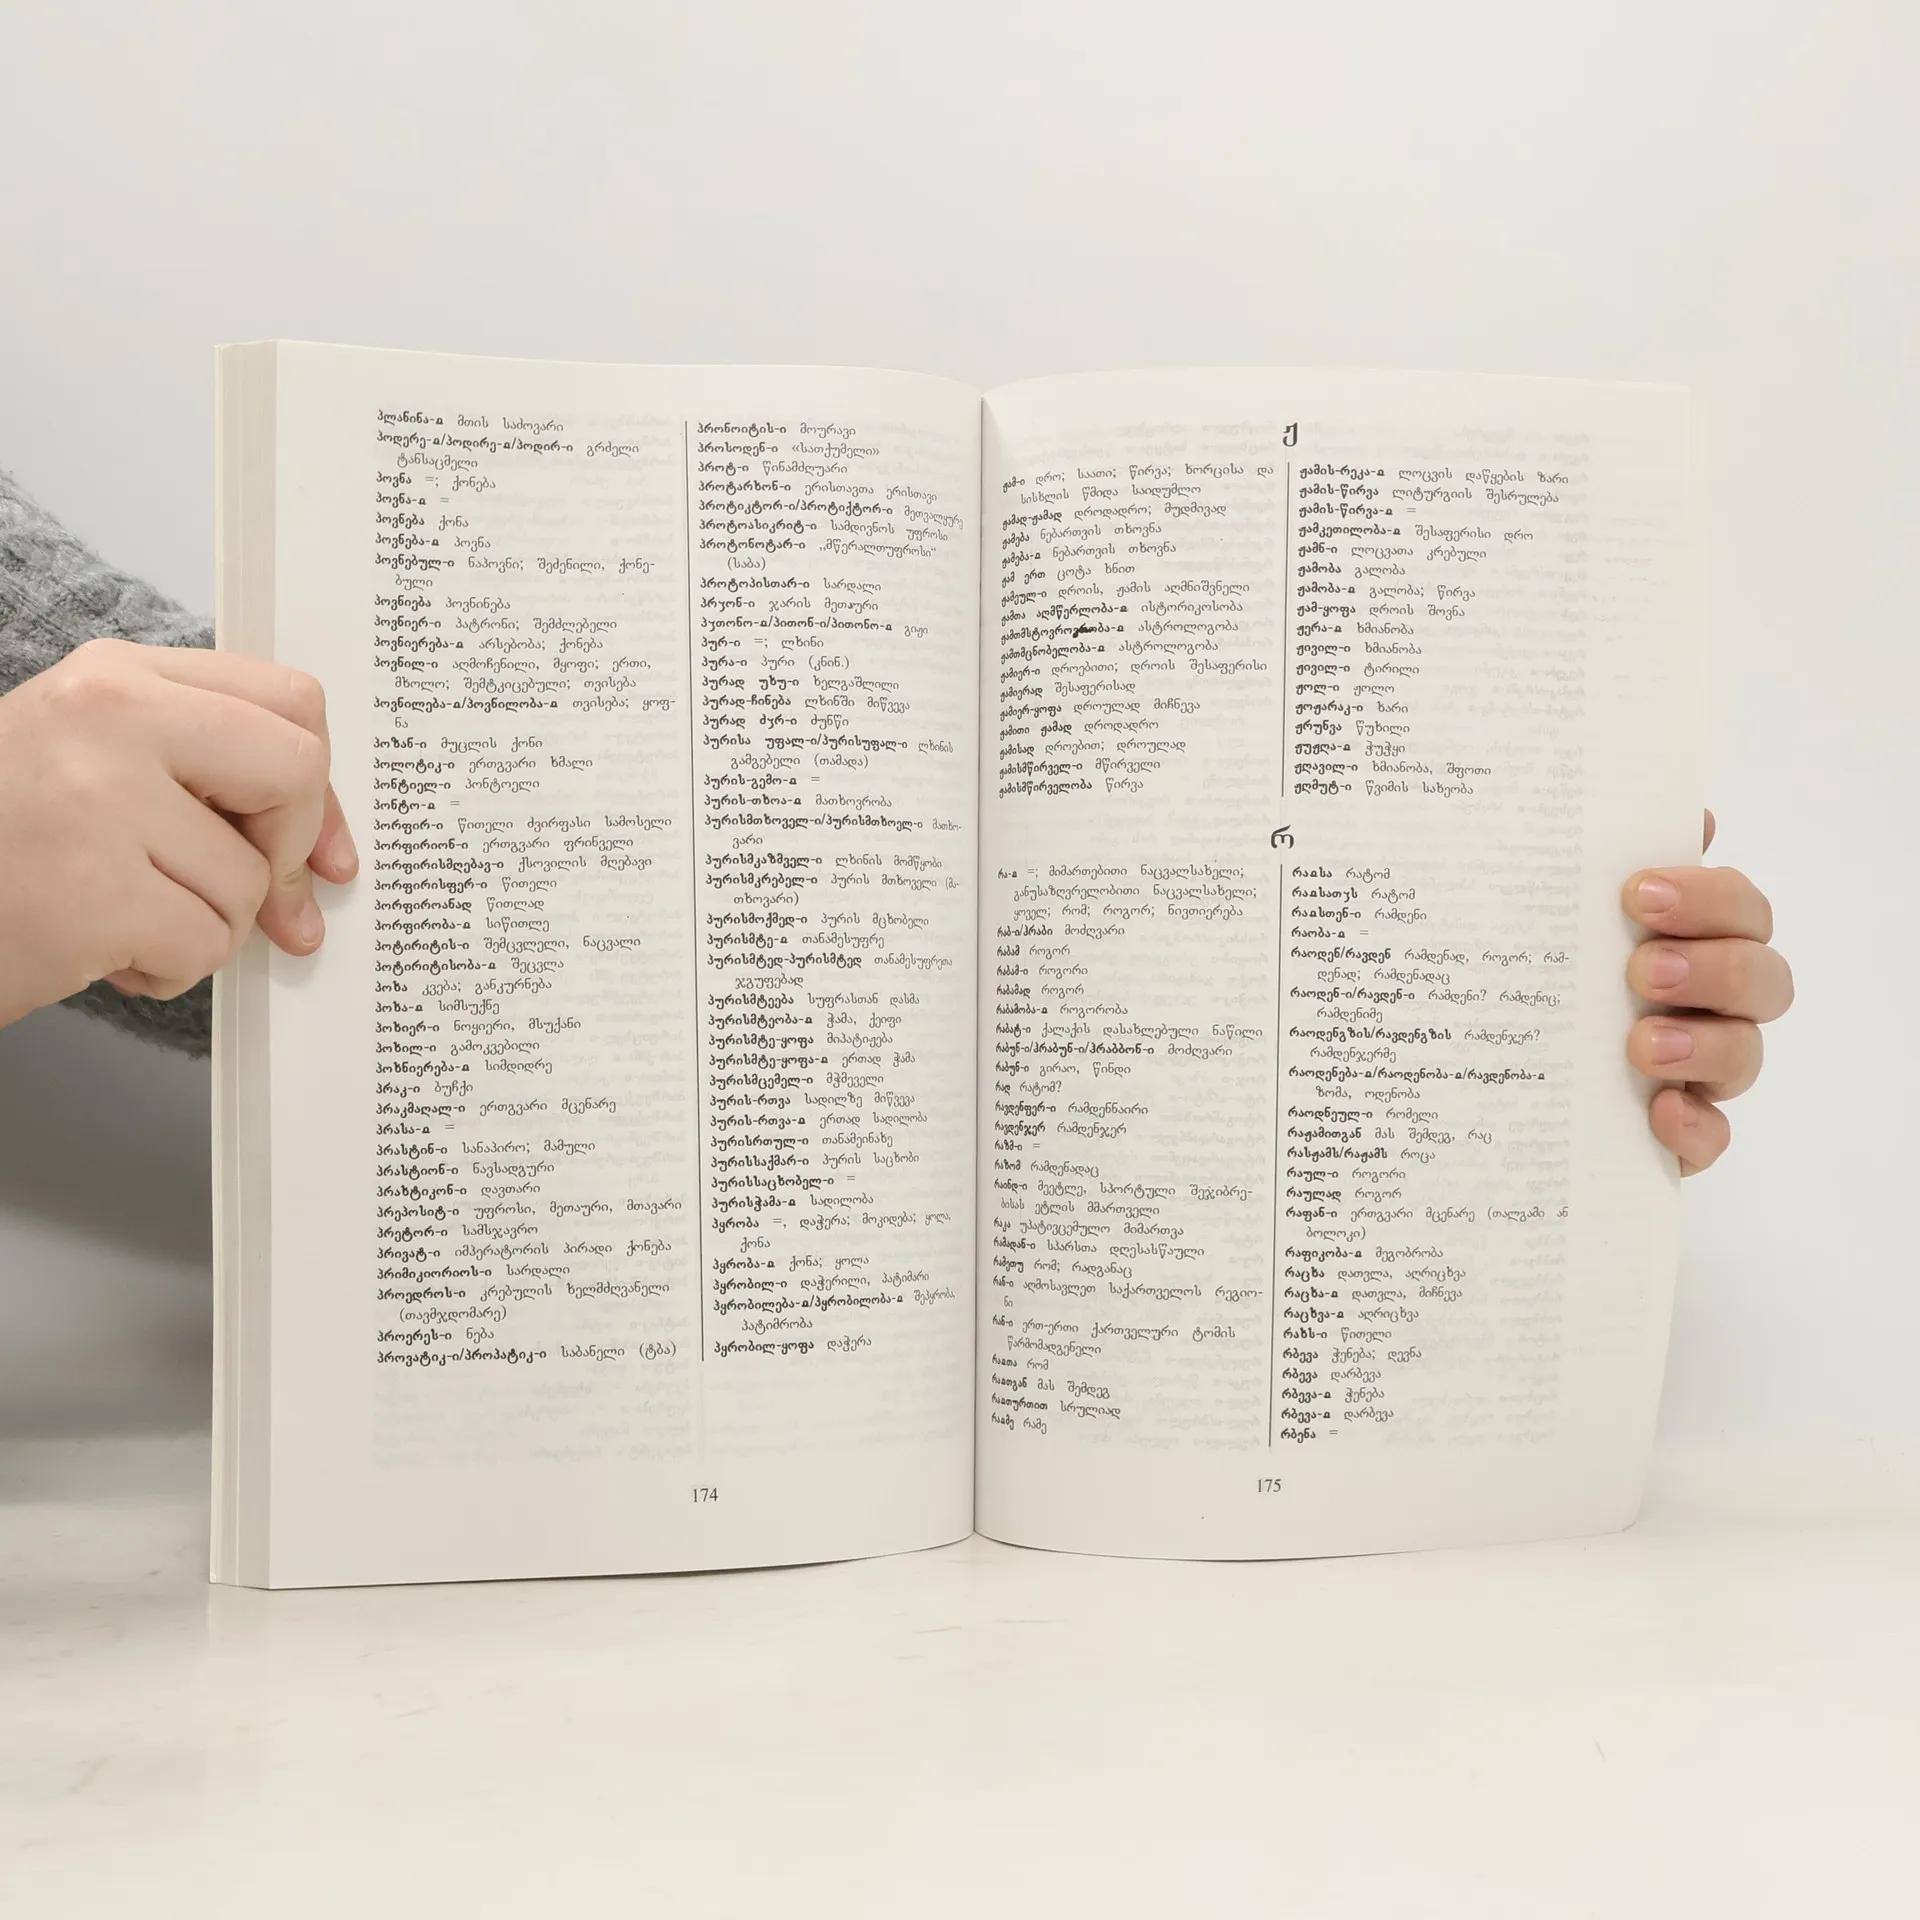 პლანინა-ჲ მთის საძოვარი
პოდერე-ჲ/პოდირე-ჲ/პოდირ-ი გრძელი
ტანსაცმელი
პოვნა =; ქონება
პოვნა-ჲ =
პოვნება ქონა
პოვნება-ჲ პოვნა
პოვნებულ-ი ნაპოვნი; შეძენილი, ქონე-
ბული
პოვნიება პოვნინება
პოვნიერ-ი პატრონი; შემძლებელი
პოვნიერება-ჲ არსებობა; ქონება
პოვნილ-ი აღმოჩენილი, მყოფი; ერთი,
მხოლო; შემტკიცებული; თვისება
პოვნილება-ჲ/პოვნილობა-ჲ თვისება; ყოფ-
ნა
პოზან-ი მუცლის ქონი
პოლოტიკ-ი ერთგვარი ხმალი
პონტიელ-ი პონტოელი
პონტო-ჲ =
პორფირ-ი წითელი ძვირფასი სამოსელი
პორფირიონ-ი ერთგვარი ფრინველი
პორფირისმღებავ-ი ქსოვილის მღებავი
პორფირისფერ-ი წითელი
პორფიროანად წითლად
პორფირობა-ჲ სიწითლე
პოტირიტის-ი შემცვლელი, ნაცვალი
პოტირიტისობა-ჲ შეცვლა
პოხა კვება; განკურნება
პოხა-ჲ სიმსუქნე
პოხიერ-ი ნოყიერი, მსუქანი
პოხილ-ი გამოკვებილი
პოხნიერება-ჲ სიმდიდრე
პრაკ-ი ბუჩქი
პრაკმაღალ-ი ერთგვარი მცენარე
პრასა-ჲ =
პრასტინ-ი სანაპირო; მამული
პრასტიონ-ი ნავსადგური
პრახტიკონ-ი დავთარი
პრეპოსიტ-ი უფროსი, მეთაური, მთავარი
პრეტორ-ი სამსჯავრო
პრივატ-ი იმპერატორის პირადი ქონება
პრიმიკიორიოს-ი სარდალი
პროედროს-ი კრებულის ხელმძღვანელი
(თავმჯდომარე)
პროერეს-ი ნება
პროვატიკ-ი/პროპატიკ-ი საბანელი (ტბა)
პრონოიტის-ი მოურავი
პროსოდენ-ი «სათქუმელი»
პროტ-ი წინამძღუარი
პროტარხონ-ი ერისთავთა ერისთავი
პროტიკტორ-ი/პროტიქტორ-ი მეთვალყურე
პროტოასიკრიტ-ი სამდივნოს უფროსი
პროტონოტარ-ი „მწერალთუფროსი“
(საბა)
პროტოპისთარ-ი სარდალი
პრჯონ-ი ჯარის მეთაური
პჳთონო-ჲ/პითონ-ი/პითონო-ჲ გიჟი
პურ-ი =; ლხინი
პურა-ი პური (კნინ.)
პურად უხუ-ი ხელგაშლილი
პურად-ჩინება ლხინში მიწვევა
პურად ძჳრ-ი ძუნწი
პურისა უფალ-ი/პურისუფალ-ი ლხინის
გამგებელი (თამადა)
პურის-გემო-ჲ =
პურის-თხოა-ჲ მათხოვრობა
პურისმთხოველ-ი/პურისმთხოელ-ი მათხო-
ვარი
პურისმკაზმველ-ი ლხინის მომწყობი
პურისმკრებელ-ი პურის მთხოველი (მა-
თხოვარი)
პურისმოქმედ-ი პურის მცხობელი
პურისმტე-ჲ თანამესუფრე
პურისმტედ-პურისმტედ თანამესუფრეთა
ჯგუფებად
პურისმტეება სუფრასთან დასმა
პურისმტეობა-ჲ ჭამა, ქეიფი
პურისმტე-ყოფა მიპატიჟება
პურისმტე-ყოფა-ჲ ერთად ჭამა
პურისმცემელ-ი მჭმეველი
პურის-რთვა სადილზე მიწვევა
პურის-რთვა-ჲ ერთად სადილობა
პურისრთულ-ი თანამეინახე
პურისსაქმარ-ი პურის საცხობი
პურისსაცხობელ-ი =
პურისჭამა-ჲ სადილობა
პყრობა =, დაჭერა; მოკიდება; ყოლა,
ქონა
პყრობა-ჲ ქონა; ყოლა
პყრობილ-ი დაჭერილი, პატიმარი
პყრობილება-ჲ/პყრობილობა-ჲ შეპყრობა,
პატიმრობა
პყრობილ-ყოფა დაჭერა
174
ჟ
ჟამ-ი დრო; საათი; წირვა; ხორცისა და
სისხლის წმიდა საიდუმლო
ჟამად-ჟამად დროდადრო; მუდმივად
ჟამება ნებართვის თხოვნა
ჟამება-ჲ ნებართვის თხოვნა
ჟამ ერთ ცოტა ხნით
ჟამეულ-ი დროის, ჟამის აღმნიშვნელი
ჟამთა აღმწერლობა-ჲ ისტორიკოსობა
ასტროლოგობა
ჟამთმცნობელობა-ჲ ასტროლოგობა
ჟამიერ-ი დროებითი; დროის შესაფერისი
ჟამიერად შესაფერისად
ჟამიერ-ყოფა დროულად მიჩნევა
ჟამითი ჟამად დროდადრო
ჟამისად დროებით; დროულად
ჟამისმწირველ-ი მწირველი
ჟამისმწირველობა წირვა
ჟამის-რეკა-ჲ ლოცვის დაწყების ზარი
ჟამის-წირვა ლიტურგიის შესრულება
ჟამის-წირვა-ჲ =
ჟამკეთილობა-ჲ შესაფერისი დრო
ჟამნ-ი ლოცვათა კრებული
ჟამობა გალობა
ჟამობა-ჲ გალობა; წირვა
ჟამ-ყოფა დროის შოვნა
ჟერა-ჲ ხმიანობა
ჟივილ-ი ხმიანობა
ჟივილ-ი ტირილი
ჟოლ-ი ჟოლო
ჟოჟარაკ-ი ხარი
ჟრუნვა წუხილი
ჟუჟღა-ჲ ჭუჭყი
ჟღავილ-ი ხმიანობა, შფოთი
ჟღმუტ-ი წვიმის სახეობა
რ
რა-ჲ =; მიმართებითი ნაცვალსახელი;
განუსაზღვრელობითი ნაცვალსახელი;
ყოველ; რომ; როგორ; ნივთიერება
რაბ-ი/ჰრაბი მოძღვარი
რაბამ როგორ
რაბამ-ი როგორი
რაბამად როგორ
რაბამობა-ჲ როგორობა
რაბატ-ი ქალაქის დასახლებული ნაწილი
რაბუნ-ი/ჰრაბუნ-ი/ჰრაბბონ-ი მოძღვარი
რაბუნ-ი გირაო, წინდი
რად რატომ?
რავდენფერ-ი რამდენნაირი
რავდენჯერ რამდენჯერ
რაზმ-ი =
რაზომ რამდენადაც
რაინდ-ი მეეტლე, სპორტული შეჯიბრე-
ბისას ეტლის მმართველი
რაკა უპატივცემულო მიმართვა
რამადან-ი სპარსთა დღესასწაული
რამეთუ რომ; რადგანაც
რან-ი აღმოსავლეთ საქართველოს რეგიო-
ნი
რან-ი ერთ-ერთი ქართველური ტომის
წარმომადგენელი
რაჲთა რომ
რაჲთგან მას შემდეგ
რაჲთურთით სრულიად
რაჲმე რამე
რაჲსა რატომ
რაჲსათჳს რატომ
რაჲსთენ-ი რამდენი
რაობა-ჲ =
რაოდენ/რავდენ რამდენად, როგორ; რამ-
დენად; რამდენადაც
რაოდენ-ი/რავდენ-ი რამდენი? რამდენიც;
რამდენიმე
რაოდენგზის/რავდენგზის რამდენჯერ?
რამდენჯერმე
რაოდენება-ჲ/რაოდენობა-ჲ/რავდენობა-ჲ
ზომა, ოდენობა
რაოდნეულ-ი რომელი
რაჟამითგან მას შემდეგ, რაც
რასჟამს/რაჟამს როცა
რაულ-ი როგორი
რაულად როგორ
რაფან-ი ერთგვარი მცენარე (თალგამი ან
ბოლოკი)
რაფიკობა-ჲ მეგობრობა
რაცხა დათვლა, აღრიცხვა
რაცხა-ჲ დათვლა, მიჩნევა
რაცხვა-ჲ აღრიცხვა
რახს-ი წითელი
რბევა ჭენება; დევნა
რბევა დარბევა
რბევა-ჲ ჭენება
რბევა-ჲ დარბევა
რბენა =
175